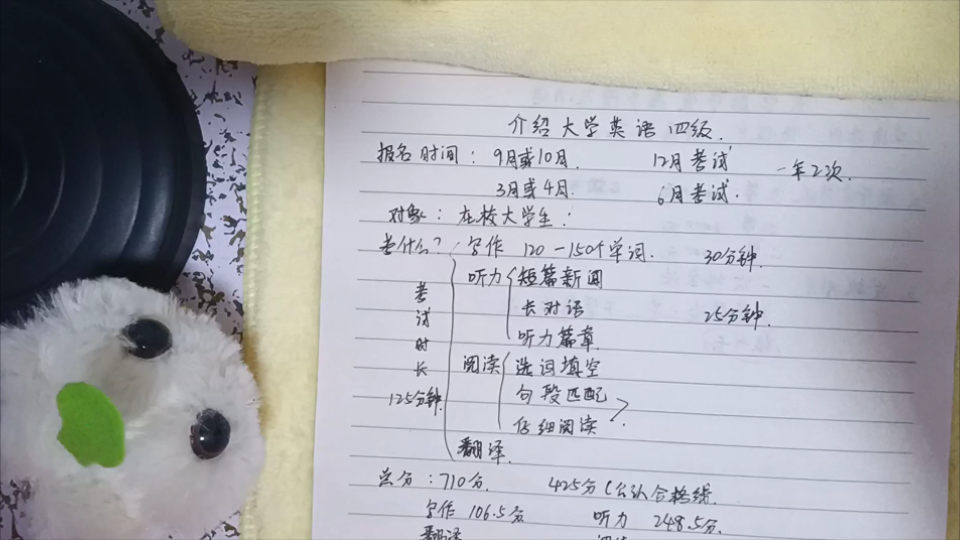 介绍大学英语四级.
报名时间：9月或10月. 12月考试 一年2次.
3月或4月. 6月考试.
对象：在校大学生：
考什么？写作 120-150个单词. 30分钟.
听力 短篇新闻
考试时长 125分钟.
长对话 25分钟.
听力篇章.
阅读 选词填空
句段匹配
仔细阅读
翻译.
总分：710分. 425分(公认合格线.
写作 106.5分 听力 248.5分.
翻译